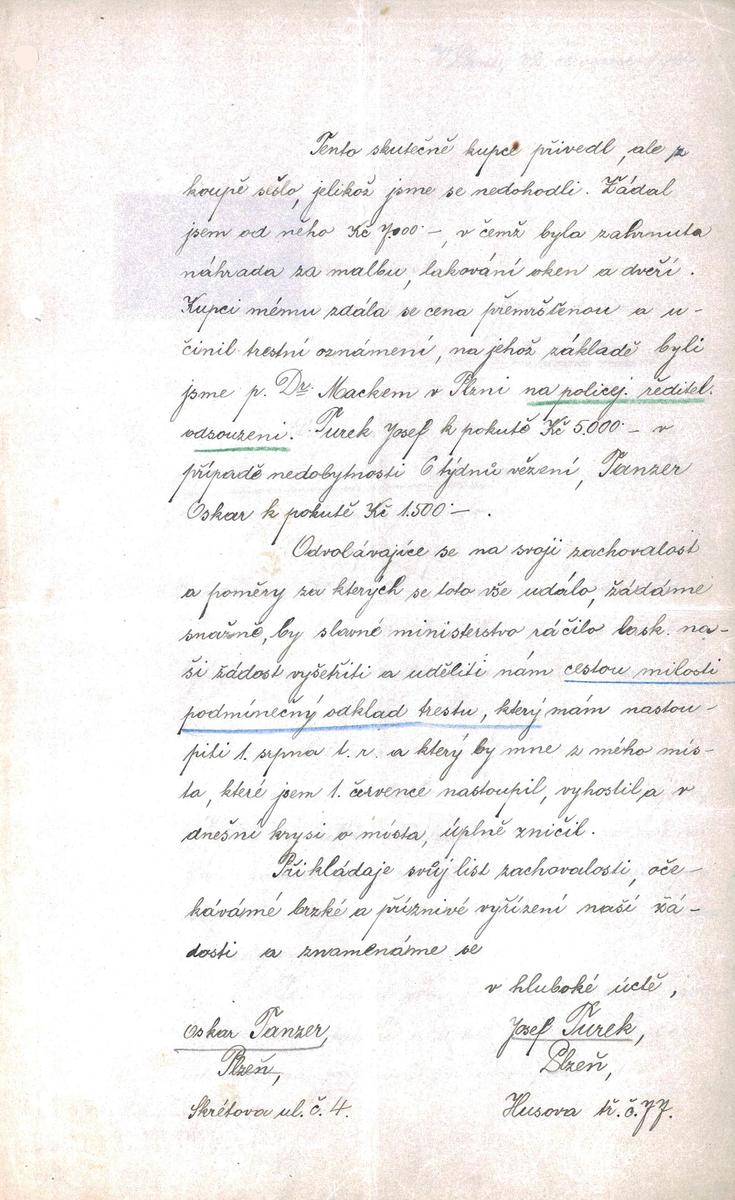 Tento skutečně kupce přivedl, ale z
koupě sešlo, jelikož jsme se nedohodli. Žádal
jsem od něho Kč 7.000·–, v čemž byla zahrnuta
náhrada za malbu, lakování oken a dveří.
Kupci mému zdála se cena přemrštěnou a u-
činil trestní oznámení, na jehož základě byli
jsme p. Dr. Mackem v Plzni na policej. ředitel.
odsouzeni. Turek Josef k pokutě Kč 5.000·– v
případě nedobytnosti 6 týdnů vězení, Tanzer
Oskar k pokutě Kč 1.500·– .
Odvolávajíce se na svoji zachovalost
a poměry za kterých se toto vše událo, žádáme
snažně, by slavné ministerstvo ráčilo lask. na-
ši žádost vyšetřiti a uděliti nám cestou milosti
podmínečný odklad trestu, který mám nastou-
piti 1. srpna t. r. a který by mne z mého mís-
ta, které jsem 1. července nastoupil, vyhostil a v
dnešní krysi o místa, úplně zničil.
Přikládaje svůj list zachovalosti, oče-
káváme brzké a příznivé vyřízení naší žá-
dosti a znamenáme se
v hluboké úctě,
Oskar Tanzer, Josef Turek,
Plzeň, Plzeň,
Skrétova ul. č. 4. Husova tř. č. 77.